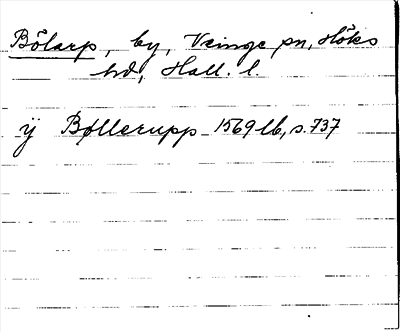 Bölarp, by, Veinge sn, Höks
hd, Hall. l.
ÿ Bøllerupp 1569 lb, s. 737